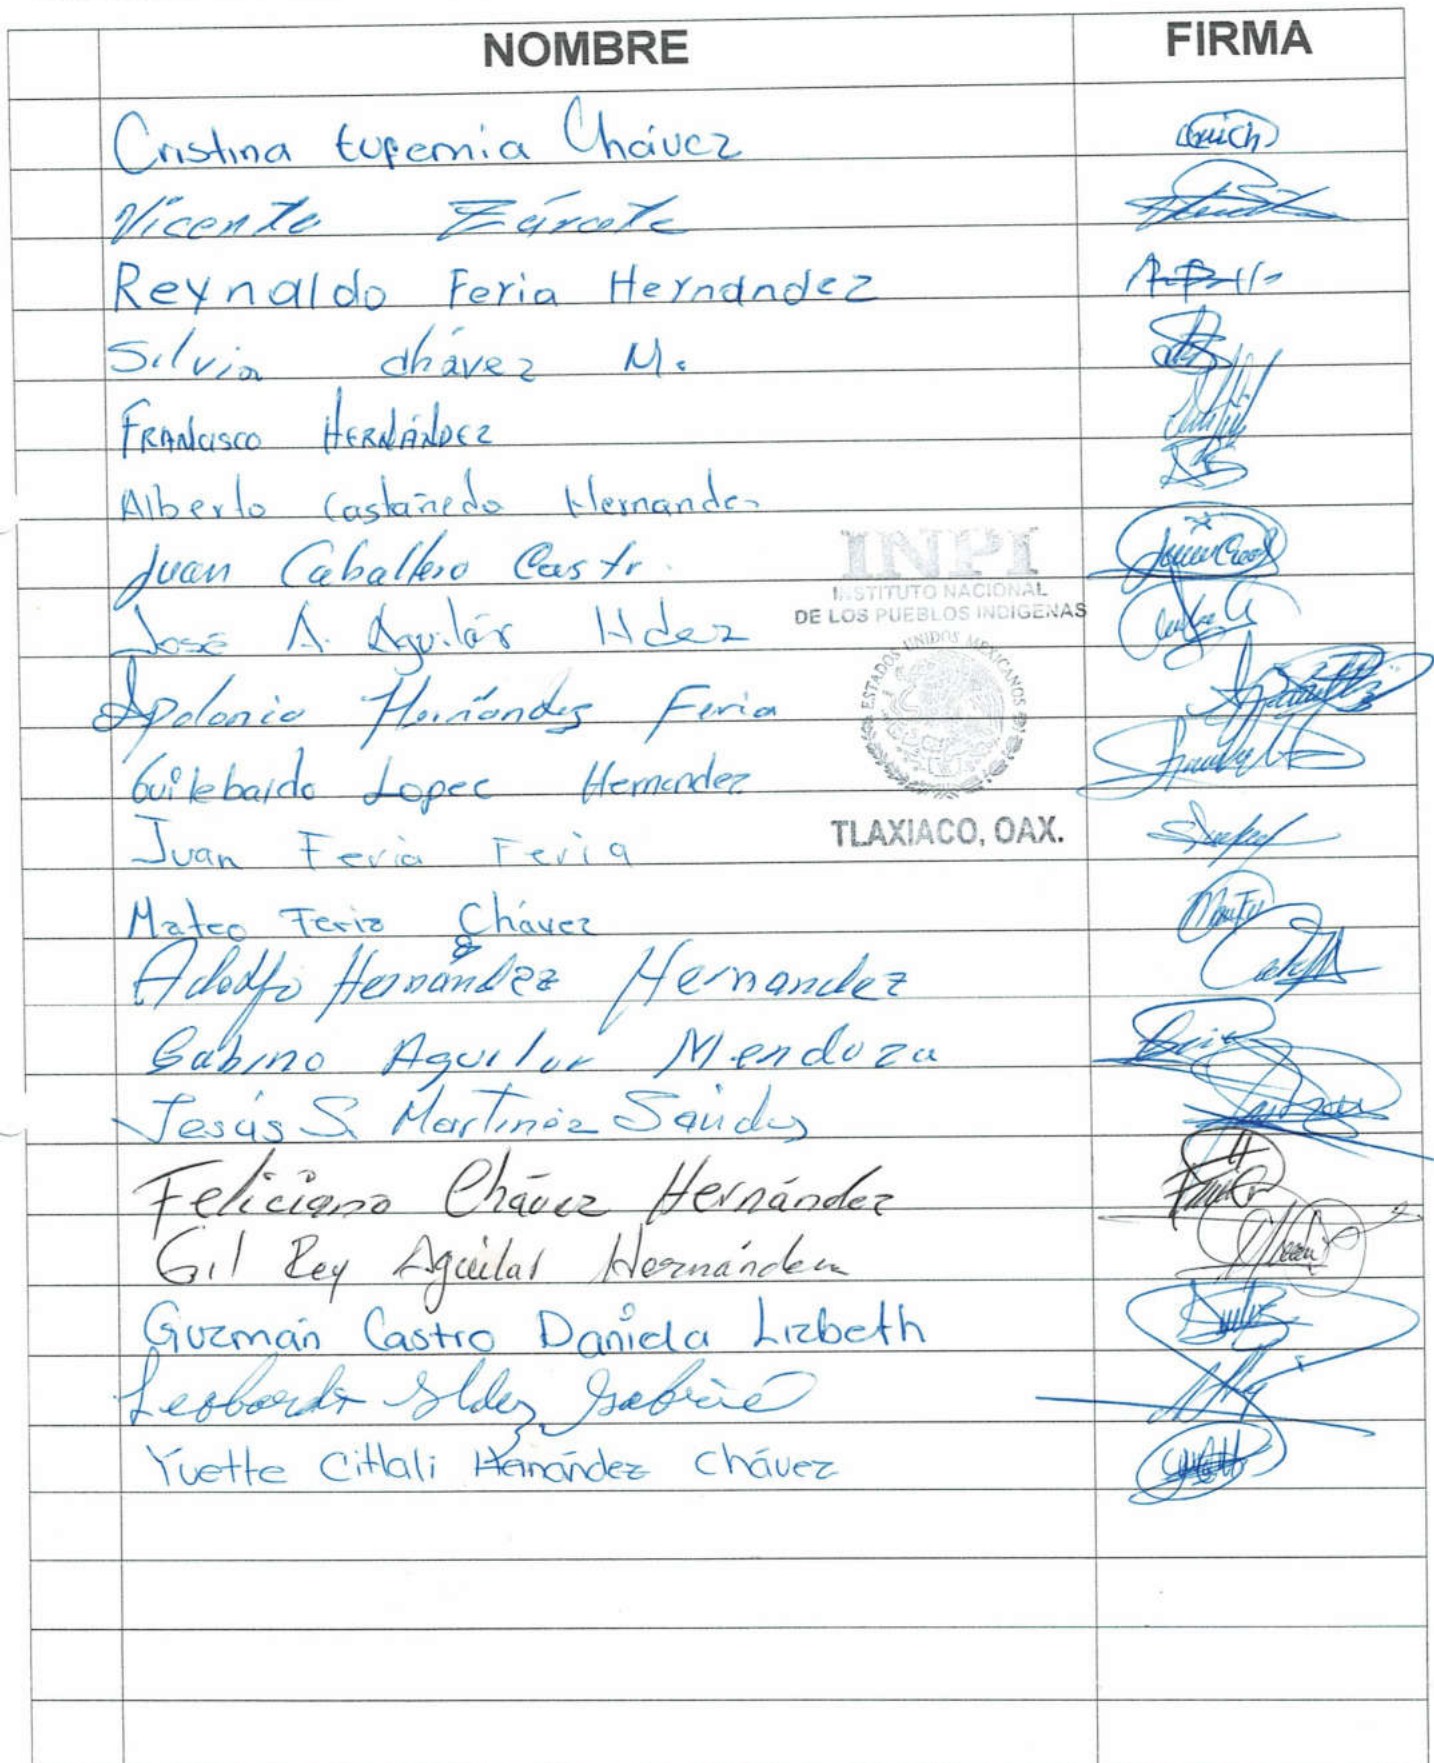 NOMBRE FIRMA
Cristina Eufemia Chávez
Vicente Zárate
Reynaldo Feria Hernández
Silvia Chávez M.
FRANCISCO HERNÁNDEZ
Alberto Castañeda Hernandez
Juan Caballero Castr.
José A. Aguilár Hdez
Apolonio Hernández Feria
Guilebardo Lopez Hernandez
Juan Feria Feria
Mateo Feria Chávez
Adolfo Hernández Hernandez
Gabino Aguilar Mendoza
Jesús S. Martinez
Feliciano Chávez Hernández
Gil Rey Aguilar Hernández
Guzmán Castro Daniela Lizbeth
Leobardo
Yvette Citlali Hernández Chávez
INPI
INSTITUTO NACIONAL
DE LOS PUEBLOS INDIGENAS
ESTADOS UNIDOS MEXICANOS
TLAXIACO, OAX.